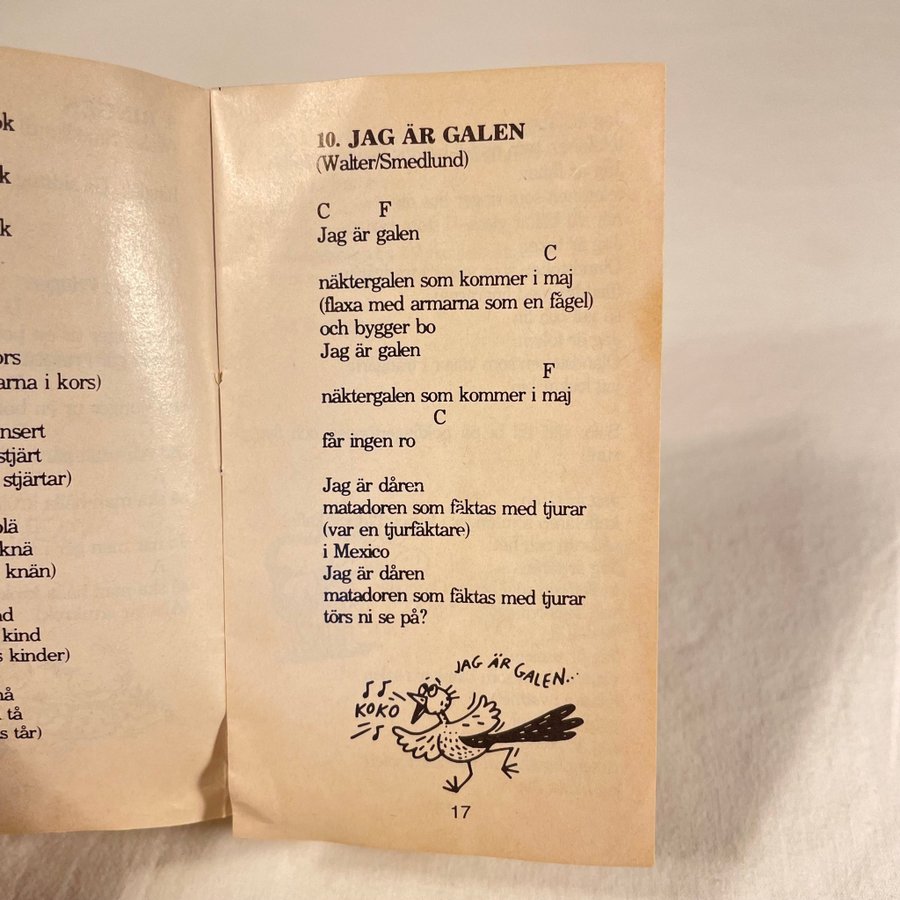 ok
k
k
ors
arna i kors)
nsert
stjärt
stjärtar)
olä
knä
knän)
nd
kind
s kinder)
nå
tå
s tår)
10. JAG ÄR GALEN
(Walter/Smedlund)
C F
Jag är galen
C
näktergalen som kommer i maj
(flaxa med armarna som en fågel)
och bygger bo
Jag är galen
F
näktergalen som kommer i maj
C
får ingen ro
Jag är dåren
matadoren som fäktas med tjurar
(var en tjurfäktare)
i Mexico
Jag är dåren
matadoren som fäktas med tjurar
törs ni se på?
JAG ÄR GALEN...
KOKO
17